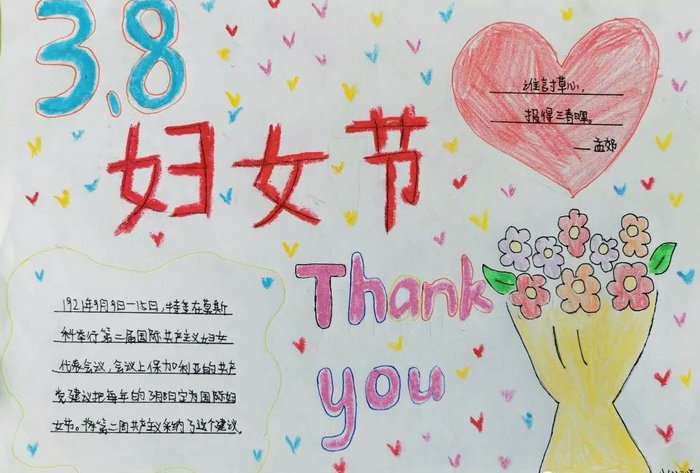 3.8
妇女节
谁言寸草心,
报得三春晖。
—孟郊
Thank
you
1921年9月9日—15日,
在莫斯
科举行第二届国际共产主义妇女
代表会议,会议上保加利亚的共产
党建议把每年的3月8日定为国际妇
女节。第二周共产主义采纳了这个建议。